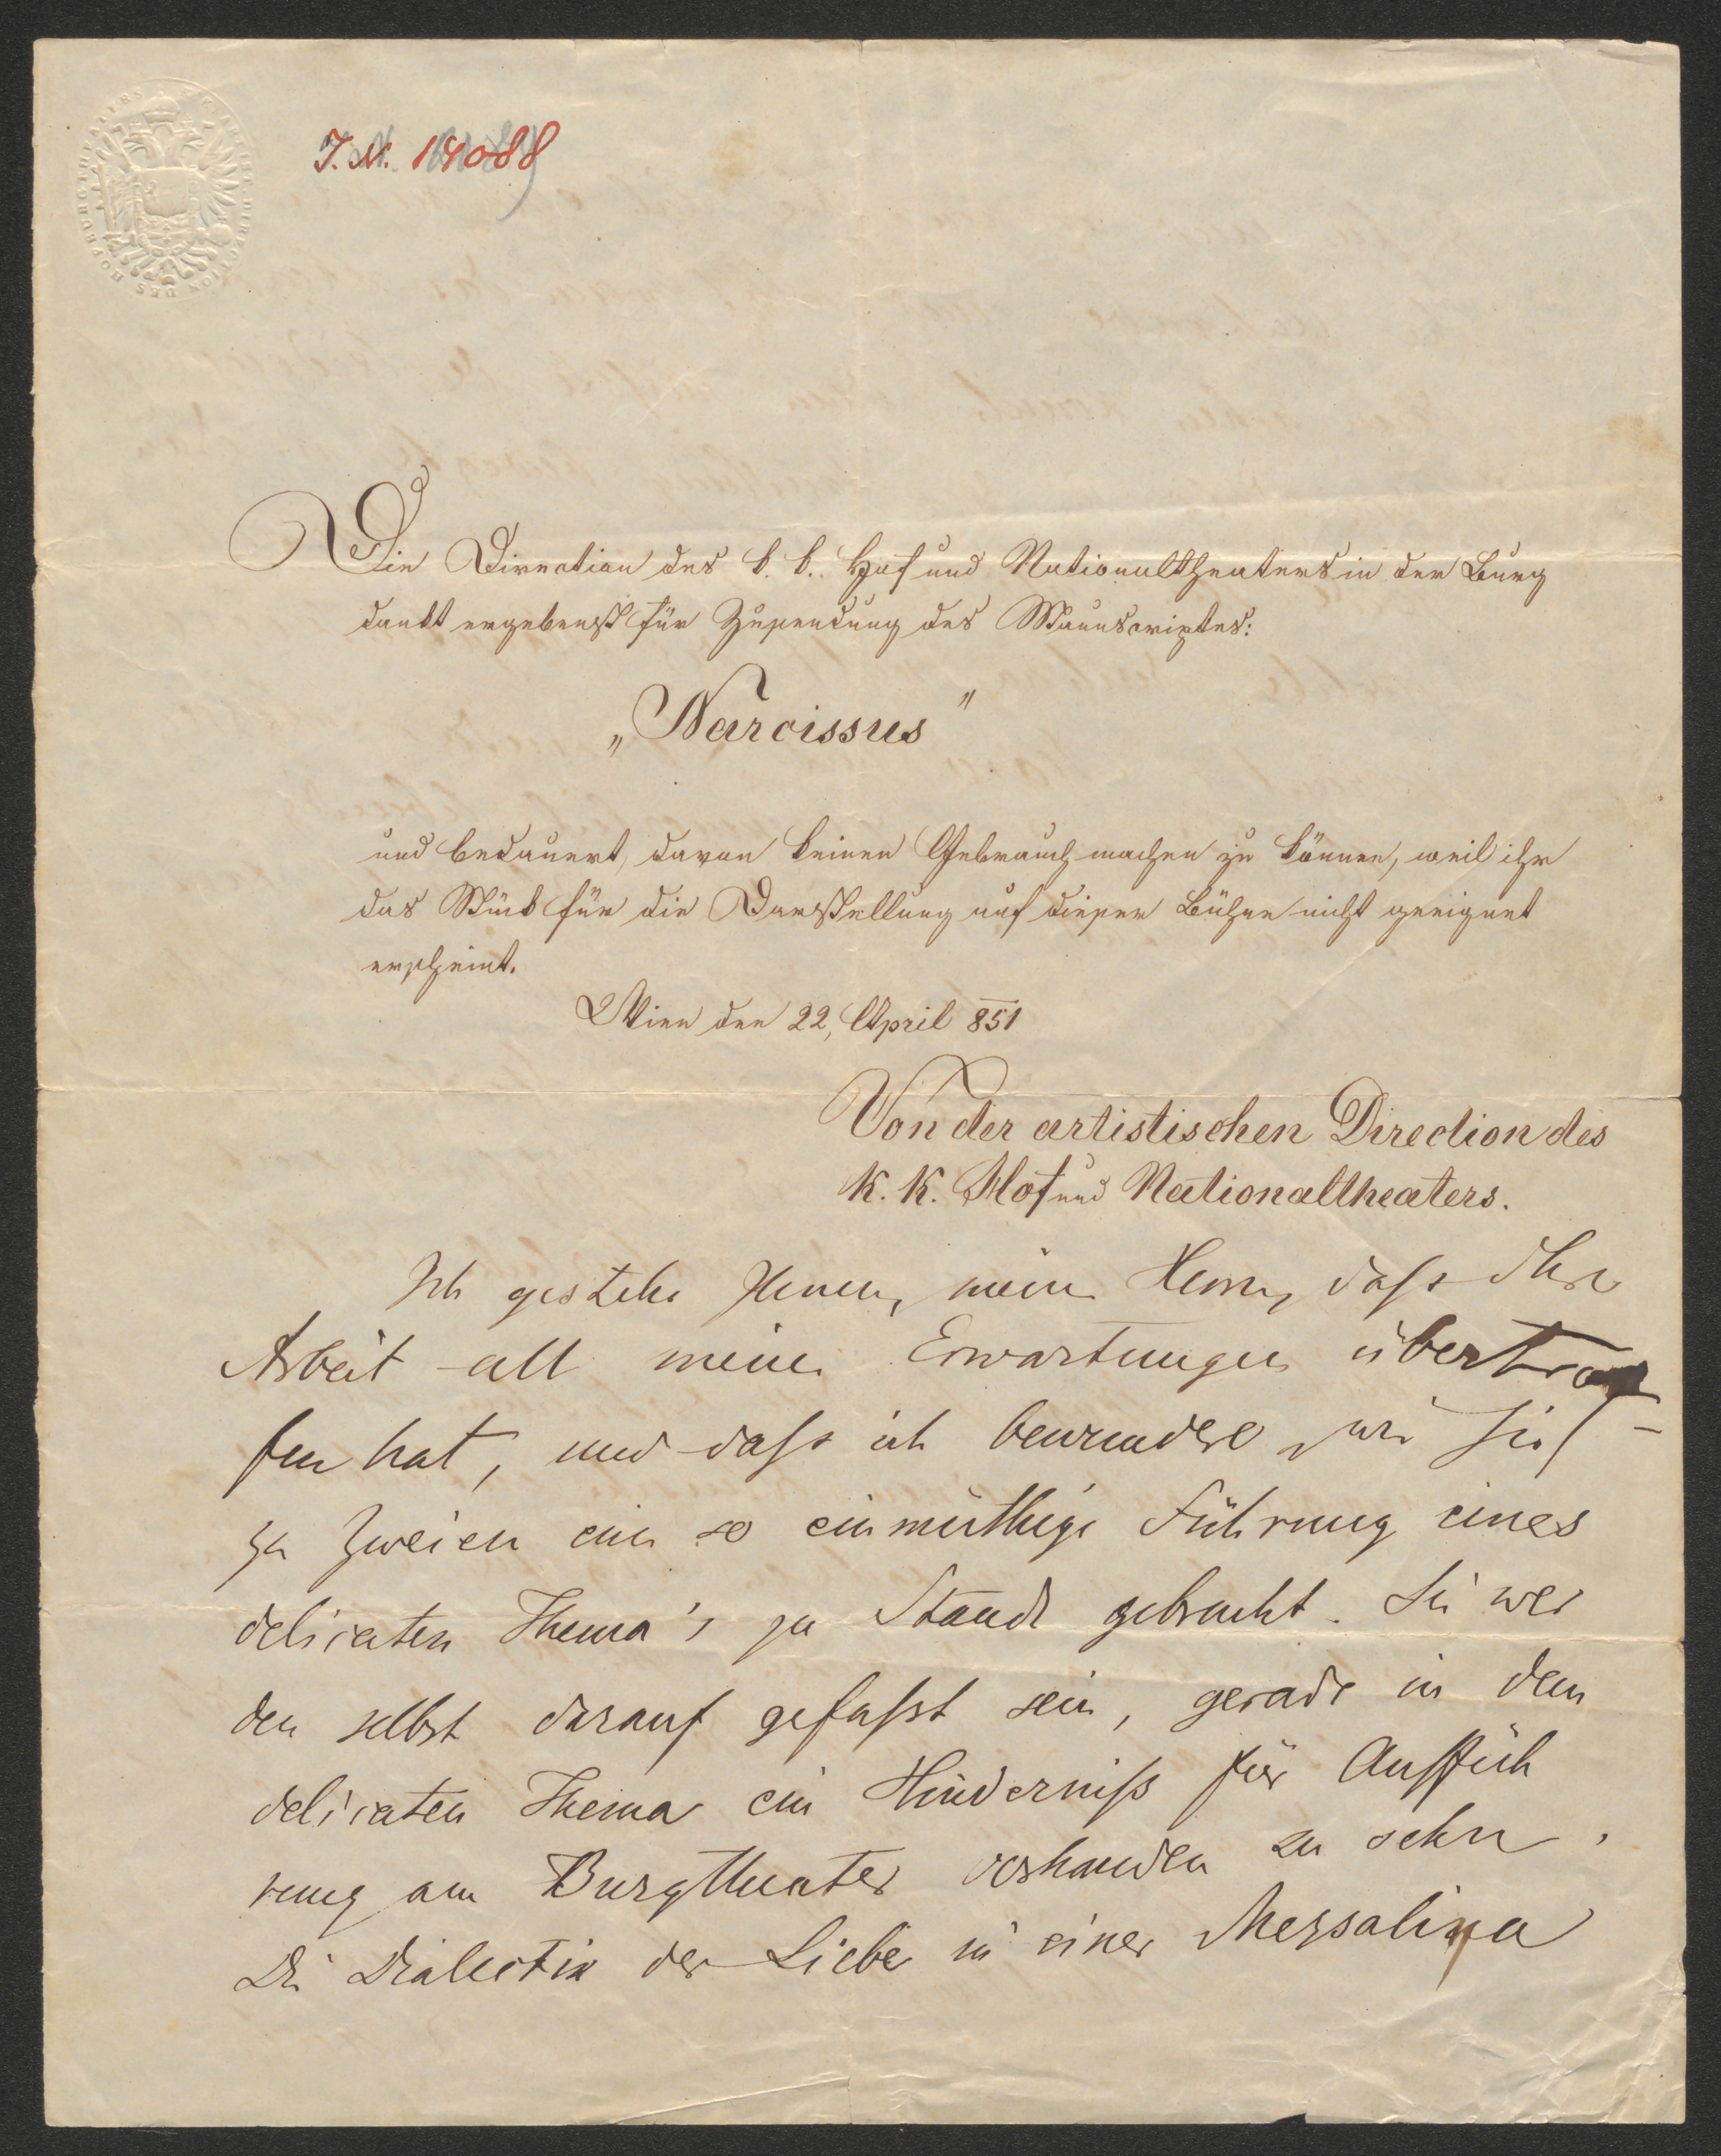 J. N. 14088
Die Direction des k. k. Hof und Nationaltheaters in der Burg
dankt ergebenst für Zusendung des Manuscriptes:
„Narcissus"
und bedauert, davon keinen Gebrauch machen zu können, weil ihr
das Stück für die Darstellung auf dieser Bühne nicht geeignet
erscheint.
Wien den 22, April 851
Von der artistischen Direction des
K. K. Hof und Nationaltheaters.
Ich gestehe Ihnen, meine Herrn, dass Ihre
Arbeit all meine Erwartungen übertrof
fen hat, und dass ich bewundere wie Sie
zu Zweien eine so einmüthige Führung eines
delicaten Thema's zu Stande gebracht. Sie wer
den selbst darauf gefasst sein, gerade in dem
delicaten Thema ein Hinderniss für Auffüh
rung am Burgtheater vorhanden zu sehn.
Die Dialectik der Liebe in einer Messalina